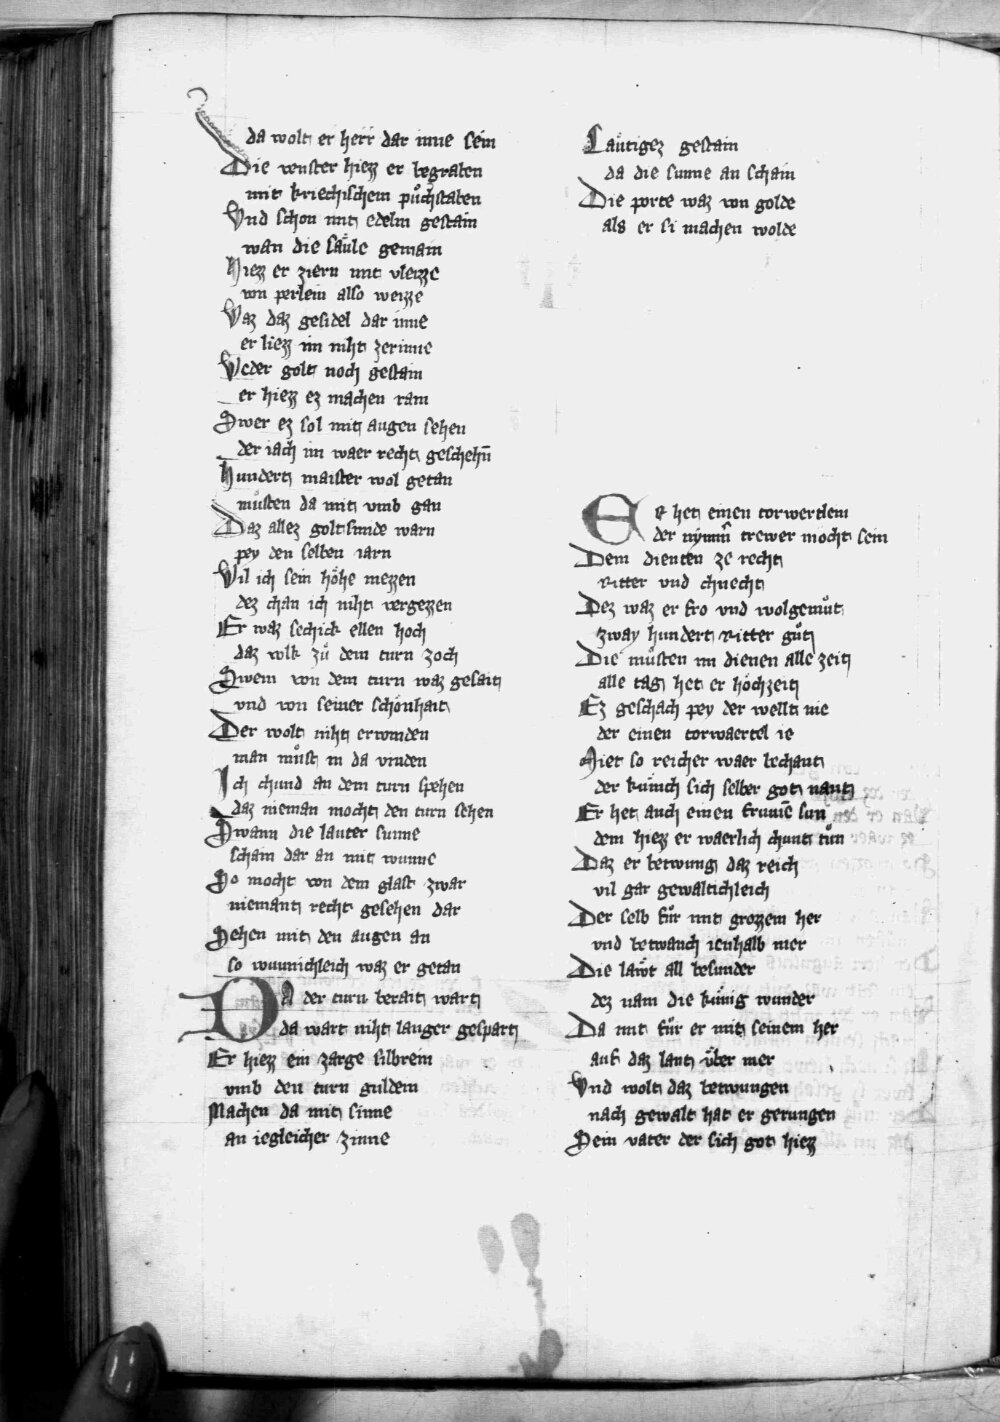 da wolt er herr dar inne sein
Die venster hiezz er begraben
mit kriechischem půchstaben
Vnd schon mit edelm gestain
wan die saͤule gemain
Hiezz er ziern mit vleizze
von perlein also weizze
Waz daz gesidel dar inne
er liezz im niht zerinne
Weder golt noch gestain
er hiezz ez machen rain
Swer ez sol mit augen sehen
der iach im waer recht geschehn̄
Hundert maister wol getan
můsten da mit vmb gan
Daz allez golt sunde warn
pey den selben iarn
Wil ich sein hoͤhe mezzen
dez chan ich niht vergezzen
Er waz sechick ellen hoch
daz volk zů dem turn zoch
Swem von dem turn waz gesait
vnd von seiner schonhait
Der wolt niht erwinden
man můst in da vinden
Ich chund an dem turn spehen
daz nieman mocht den turn sehen
Swann die lauter sunne
schain dar an mit wunne
So mocht von dem glast zwar
niemant recht gesehen dar
Sehen mit den augen an
so wunnichleich waz er getan
Da der turn berait wart
da wart niht langer gespart
Er hiezz ein zarge silbrein
vmb den turn guldein
Machen da mit sinne
an iegleicher zinne
Lautigez gestain
da die sunne an schain
Die porte waz von golde
als er si machen wolde
Er het einen torwertlein
der nymm̄ trewer mocht sein
Dem dienten ze recht
Ritter vnd chnecht
Dez waz er fro vnd wolgemůt
zway hundert Ritter gůt
Die můsten im dienen alle zeit
alle tag het er hochzeit
Ez geschach pey der wellt nie
der einen torwaertel ie
Niet so reicher waer bechant
der kunich sich selber got nant
Er het auch einen frumē sun
dem hiezz er waerlich chunt tůn
Daz er betwung daz reich
vil gar gewaltichleich
Der selb fůr mit grozzem her
vnd betwanch ienhalb mer
Die lawt all besunder
dez nam die kunig wunder
Da mit fůr er mit seinem her
auf daz lant vͤber mer
Vnd wolt daz betwungen
nach gewalt hat er gerungen
Sein vater der sich got hiezz